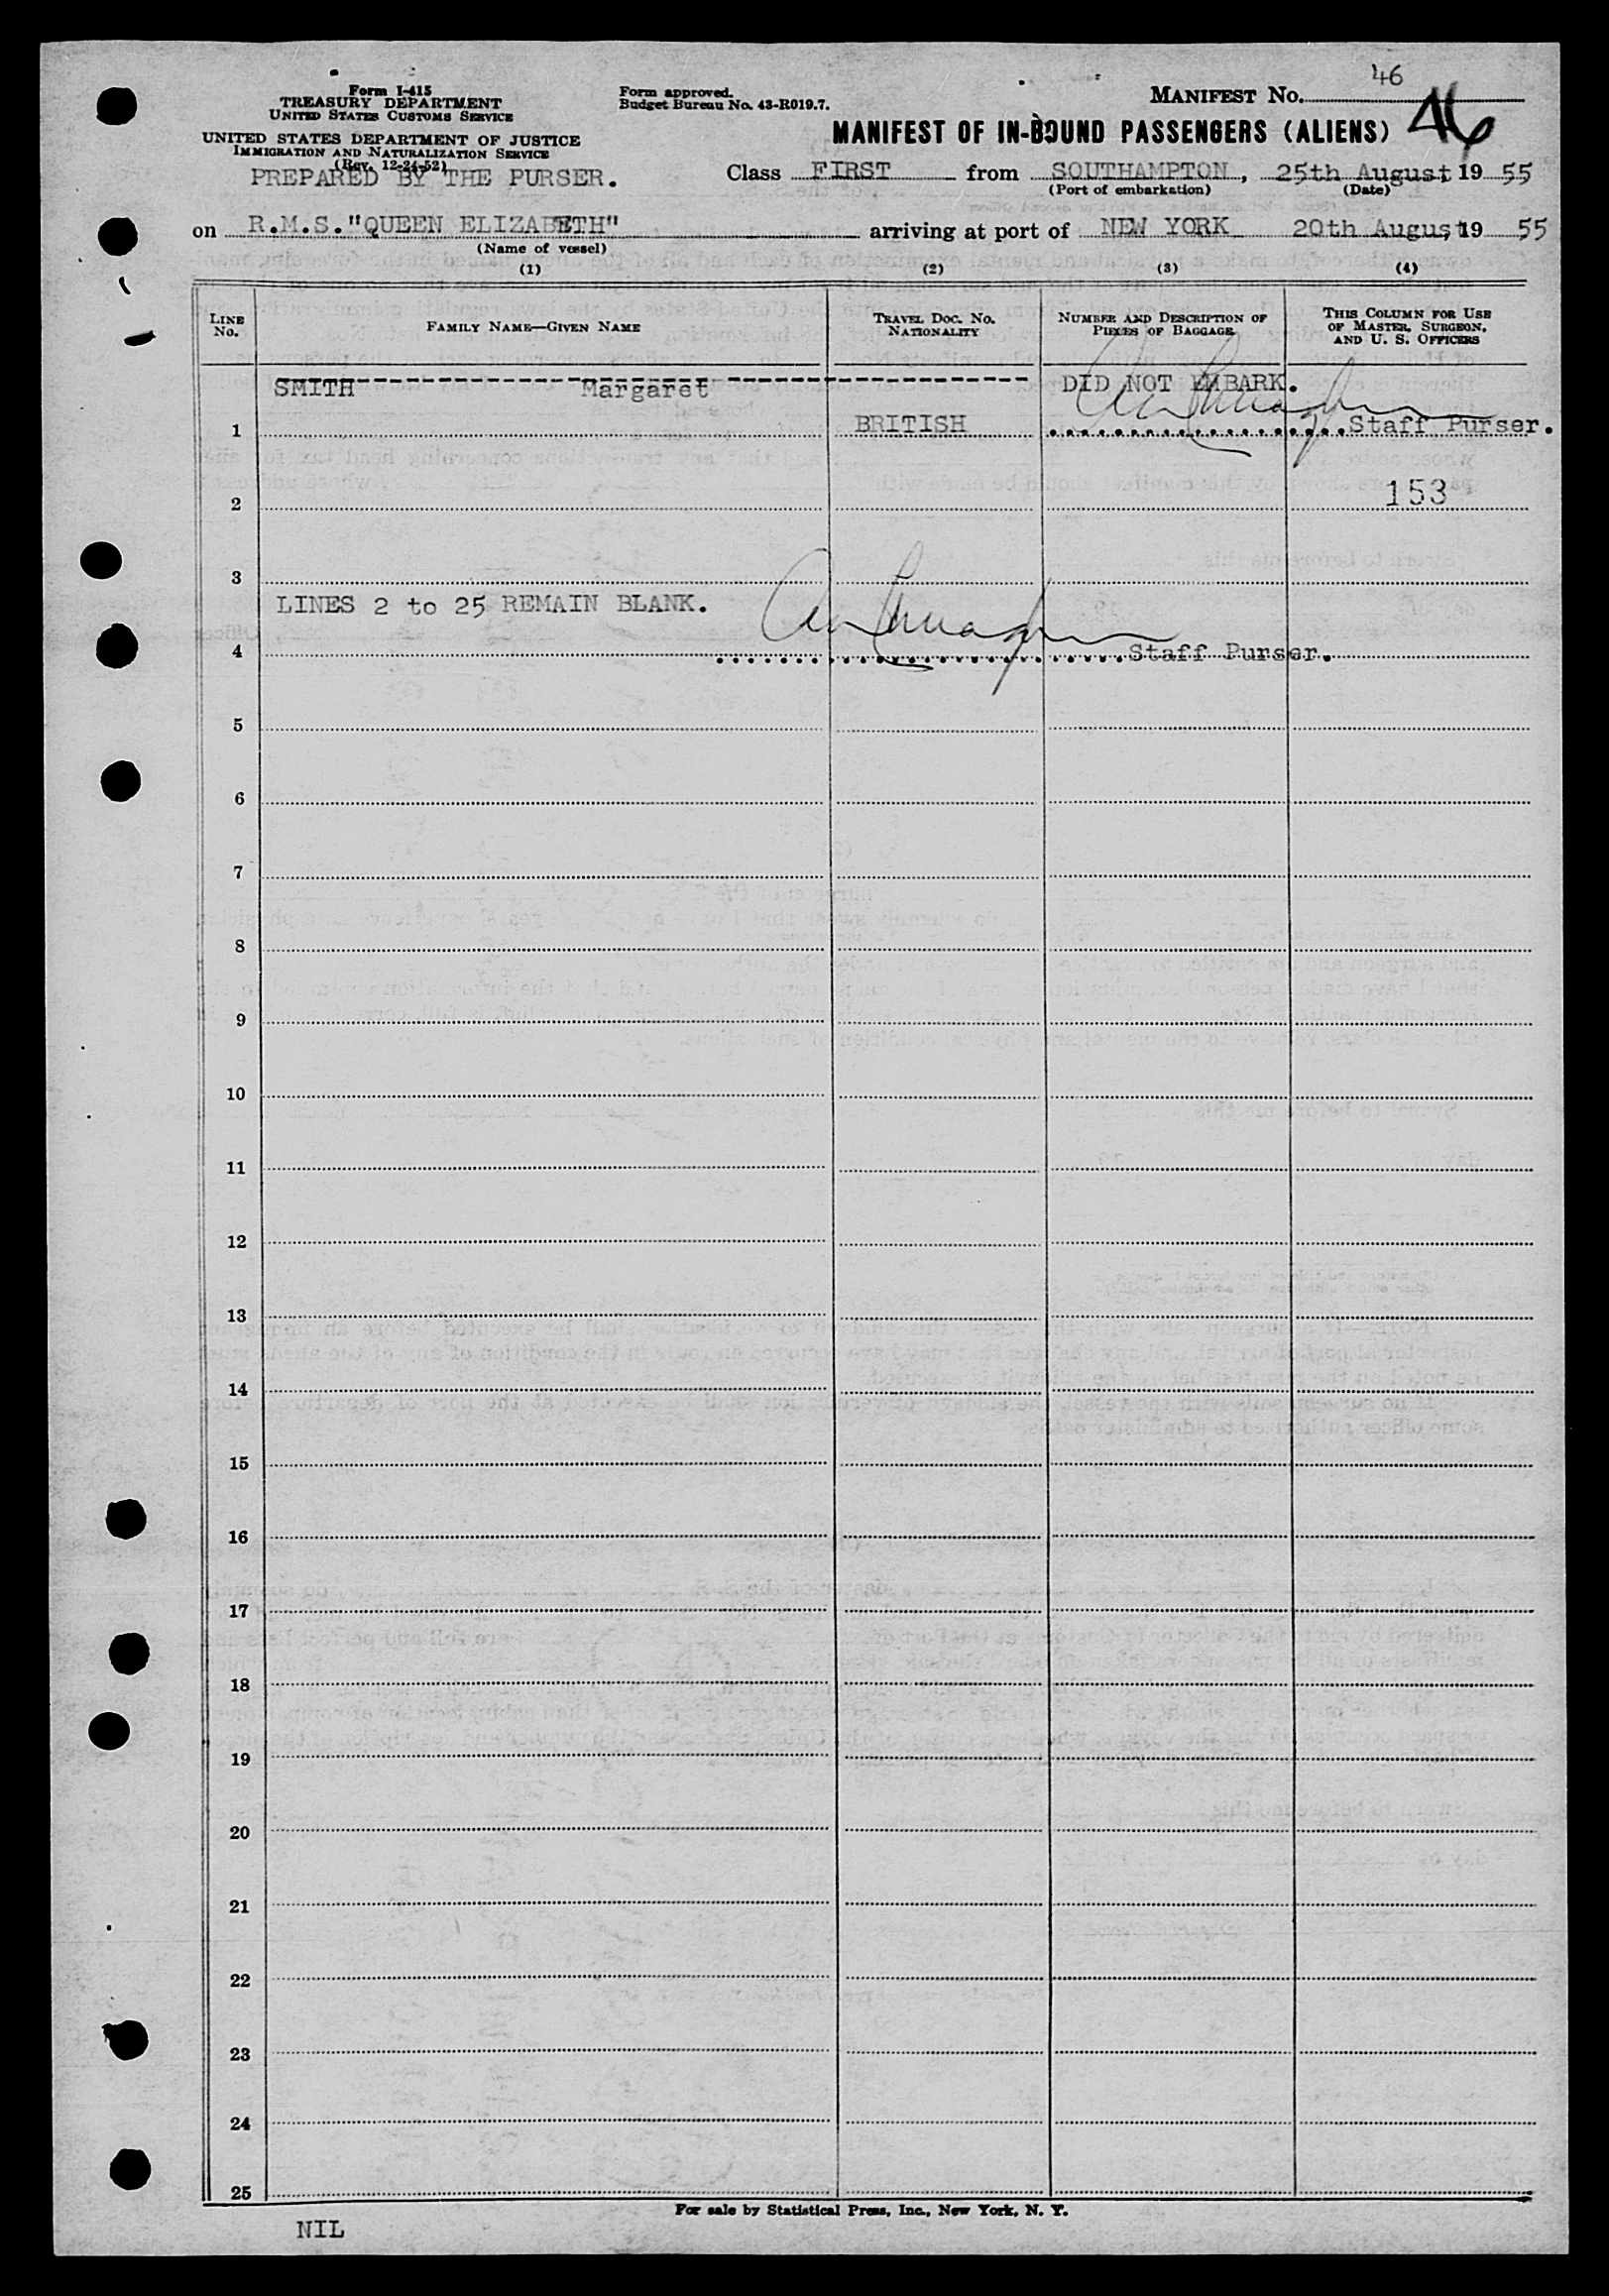 46
Form I-415
TREASURY DEPARTMENT
UNITED STATES CUSTOMS SERVICE
UNITED STATES DEPARTMENT OF JUSTICE
IMMIGRATION AND NATURALIZATION SERVICE
(Rev. 12-24-52)
PREPARED BY THE PURSER.
Form approved.
Budget Bureau No. 43-R019.7.
MANIFEST No.
MANIFEST OF IN-BOUND PASSENGERS (ALIENS) 46
Class FIRST from SOUTHAMPTON, 25th August, 19 55
(Port of embarkation) (Date)
on R.M.S."QUEEN ELIZABETH" arriving at port of NEW YORK 20th August, 19 55
(Name of vessel)
(1) (2) (3) (4)
LINE No. FAMILY NAME—GIVEN NAME TRAVEL DOC. No. NATIONALITY NUMBER AND DESCRIPTION OF PIECES OF BAGGAGE THIS COLUMN FOR USE OF MASTER, SURGEON, AND U. S. OFFICERS
SMITH Margaret DID NOT EMBARK.
1 BRITISH Staff Purser.
153
2
3
LINES 2 to 25 REMAIN BLANK.
4 Staff Purser.
5
6
7
8
9
10
11
12
13
14
15
16
17
18
19
20
21
22
23
24
25
For sale by Statistical Press, Inc., New York, N. Y.
NIL